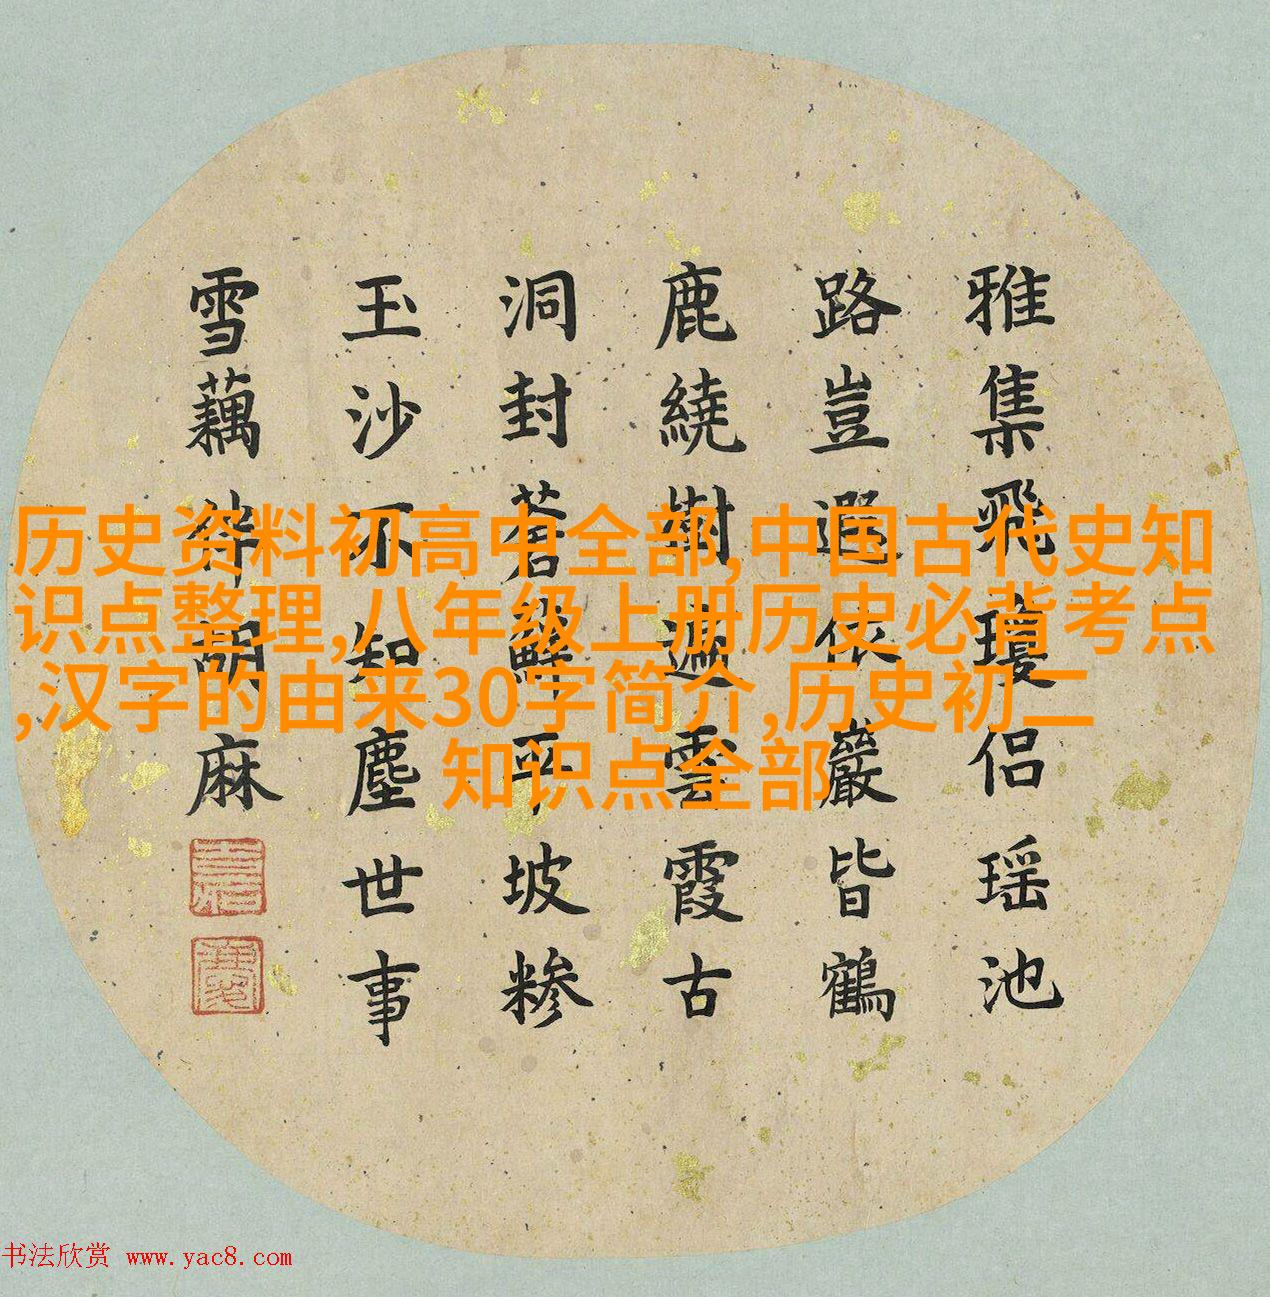 雅集飛瓊侶瑶池
路豈遐依巖皆鶴
鹿繞樹遍雲霞古
洞封蒼蘚平坡糁
玉沙不知塵世事
雪藕胡麻
历史资料初高中全部,中国古代史知
识点整理,八年级上册历史必背考点
,汉字的由来30字简介,历史初二
知识点全部
书法欣赏 www.yac8.com